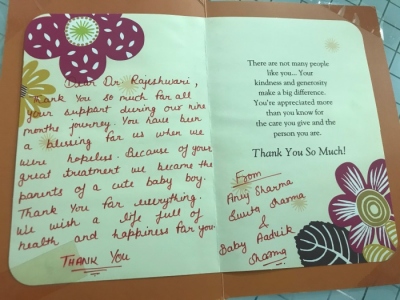 Dear Dr. Rajeshwari,
Thank You so much for all
your support during our nine
months journey. You have been
a blessing for us when we
were hopeless. Because of your
great treatment we became the
parents of a cute baby boy.
Thank You for everything.
We wish a life full of
health and happiness for you.
THANK YOU
There are not many people
like you... Your
kindness and generosity
make a big difference.
You're appreciated more
than you know for
the care you give and the
person you are.
Thank You So Much!
From
Anuj Sharma
Sunita Sharma
&
Baby Aadvik
Sharma